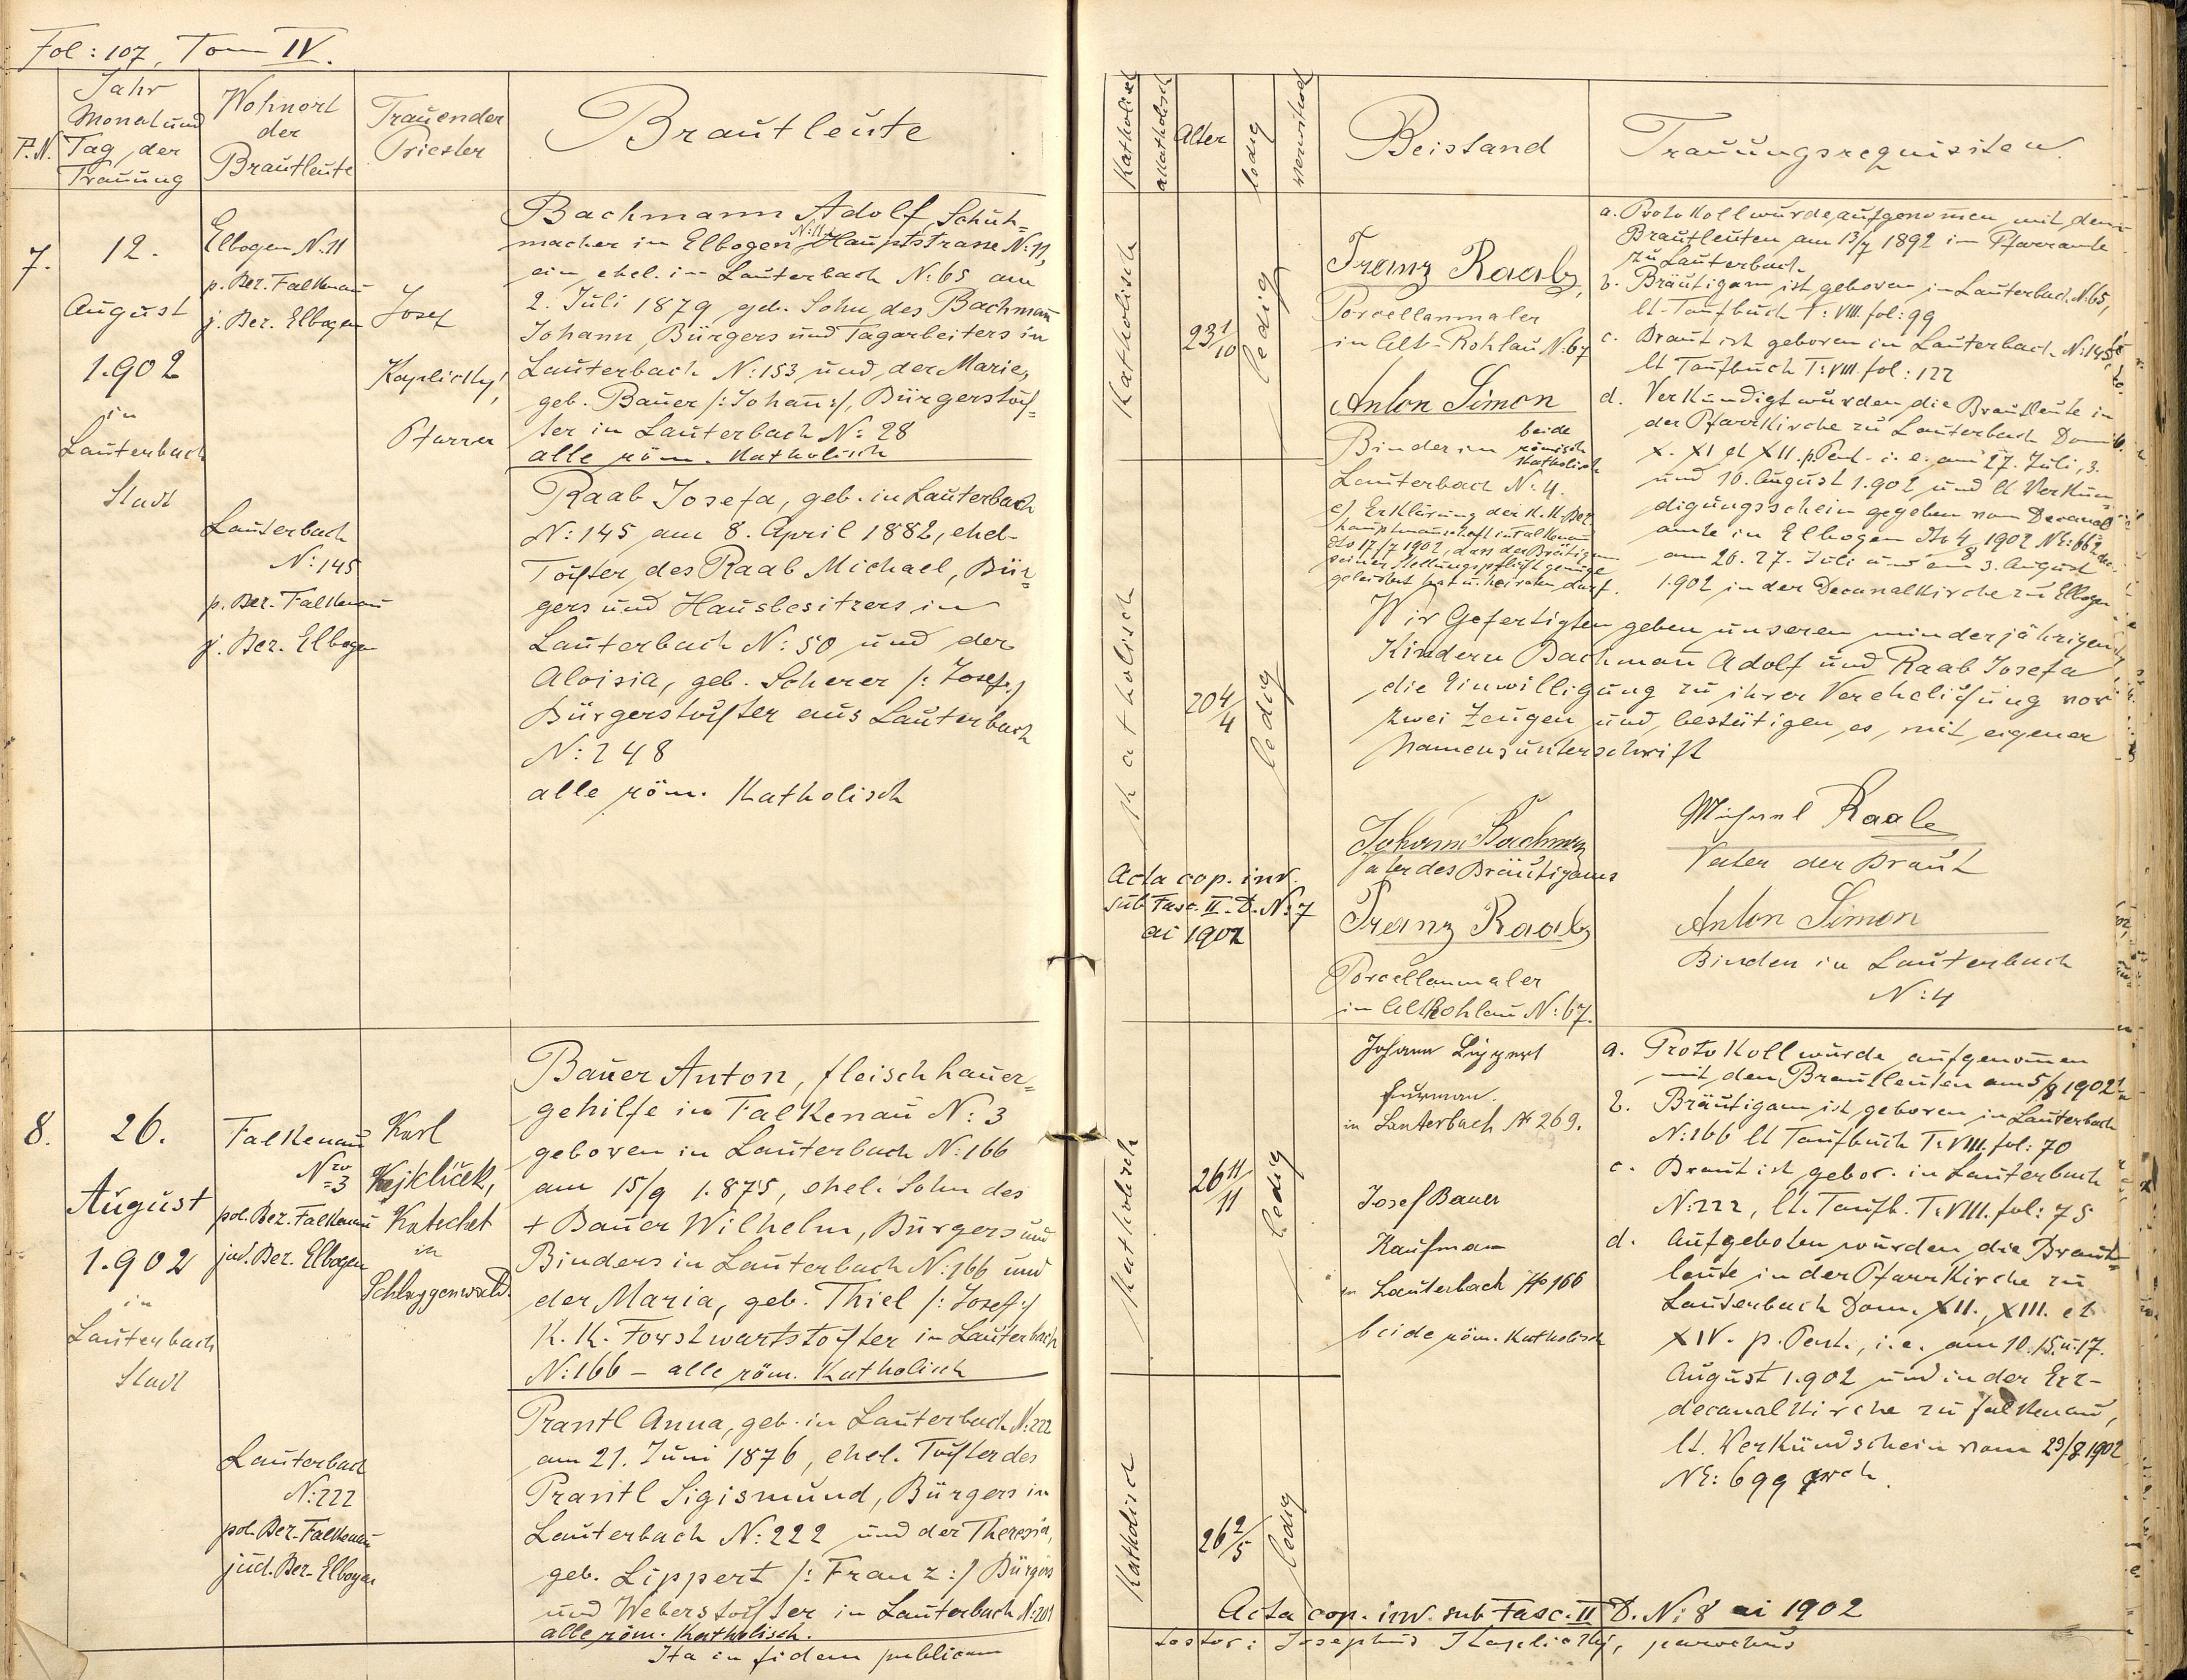 Fol: 107, Tom IV.
P.N.
Jahr
Monat und
Tag der
Trauung
Wohnort
der
Brautleute
Trauender
Priester
Brautleute
7.
12.
August
1.902
in
Lauterbach
Stadt
Elbogen N. 11
p. Bez. Falkenau
j. Bez. Elbogen
Josef
Kaplicky,
Pfarrer
Bachmann Adolf, Schuh=
macher in Elbogen N: 11, Hauptstrasse N: 11,
ein ehel. in Lauterbach N: 65 am
2. Juli 1879 geb. Sohn des Bachmañ
Johann, Bürgers und Tagarbeiters in
Lauterbach N: 153 und der Marie,
geb. Bauer /: Johañ :/, Bürgerstoch=
ter in Lauterbach N: 28
alle röm. Katholisch
Lauterbach
N: 145
p. Bez. Falkenau
j. Bez. Elbogen
Raab Josefa, geb. in Lauterbach
N: 145 am 8. April 1882, ehel.
Tochter des Raab Michael, Bür=
gers und Hausbesitzers in
Lauterbach N: 50 und der
Aloisia, geb. Scherer /: Josef :/
Bürgerstochter aus Lauterbach
N: 248
alle röm. Katholisch
8.
26.
August
1.902
in
Lauterbach
Stadt
Falkenau
Nro
= 3
pol. Bez. Falkenau
jud. Bez. Elbogen
Karl
Kejklíček,
Katechet
in
Schlaggenwald.
Bauer Anton, fleischhauer=
gehilfe in Falkenau N: 3
geboren in Lauterbach N: 166
am 15/9 1.875, ehel. Sohn des
+ Bauer Wilhelm, Bürgers und
Binders in Lauterbach N: 166 und
der Maria, geb. Thiel /: Josef :/
K. K. Forstwartstochter in Lauterbach
N: 166 – alle röm. Katholisch
Lauterbach
N: 222
pol. Bez. Falkenau
jud. Bez. Elbogen
Prantl Anna, geb. in Lauterbach N: 222
am 21. Juni 1876, ehel. Tochter des
Prantl Sigismund, Bürgers in
Lauterbach N: 222 und der Theresia,
geb. Lippert /: Franz :/ Bürgers
und Weberstochter in Lauterbach N: 201
alle röm. Katholisch.
Ita in fidem publicam
Katholisch
akatholisch
Alter
ledig
verwitwet
Beistand
Trauungsrequisiten.
Katholisch
23 1/10
ledig
Franz Raab,
Porcellanmaler
in Alt-Rohlau N: 67
Anton Simon
Binder in
beide
römisch
Katholisch
Lauterbach N: 4.
e) Erklärung der K.K. Bez.
hauptmannschaft in Falkenau
dto 17/7 1902, dass der Bräutigam
seiner Stellungspflicht genüge
geleistet hat u. heiraten darf.
a. Protokoll wurde aufgenomen mit den
Brautleuten am 13/7 1892 im Pfarramte
zu Lauterbach.
b. Bräutigam ist geboren in Lauterbach N: 65,
lt Taufbuch T: VIII. fol: 99
c. Braut ist geboren in Lauterbach N: 145,
lt Taufbuch T: VIII. fol: 122
d. Verkündigt wurden die Brautleute in
der Pfarrkirche zu Lauterbach Dom.
X. XI et XII. p. Pent. i. e. am 27. Juli, 3.
und 10. August 1.902 und lt Verkün=
digungsschein gegeben vom Decanal
amte in Elbogen dto 4/8 1902 NE: 662
am 20. 27. Juli und am 3. August
1.902 in der Decanalkirche zu Elbogen
Katholisch
20 4/4
ledig
Wir Gefertigten geben unseren minderjährigen
Kindern Bachmañ Adolf und Raab Josefa
die Einwilligung zu ihrer Verehelichung vor
zwei Zeugen und bestätigen es mit eigener
Namensunterschrift
Johann Bachman
Vater des Bräutigams
Michael Raab
Vater der Braut
Acta cop. inv.
sub Fasc. II. D. N: 7
ai 1902
Franz Raab
Porcellanmaler
in Altrohlau N: 67.
Anton Simon
Binder in Lauterbach
N: 4
Katholisch
26 11/11
ledig
Johann Lippert
fuhrman.
in Lauterbach № 269.
Josef Bauer
Kaufman
in Lauterbach № 166
beide röm. Katholisch
a. Protokoll wurde aufgenomen
mit den Brautleuten am 5/8 1902
b. Bräutigam ist geboren in Lauterbach
N: 166 lt Taufbuch T: VIII. fol: 70
c. Braut ist gebor. in Lauterbach
N: 222, lt. Taufb. T: VIII. fol: 75
d. Aufgeboten wurden die Braut=
leute in der Pfarrkirche zu
Lauterbach Dom. XII., XIII. et
XIV. p. Pent., i. e. am 10. 15. u. 17.
August 1.902 und in der Erz-
decanalkirche zu Falkenau,
lt. Verkündschein vom 23/8 1902
NE: 699
Katholisch
26 2/5
ledig
Acta cop. inv. sub Fasc. II D. N: 8 ai 1902
testor: Josephus Kaplicky, parochus